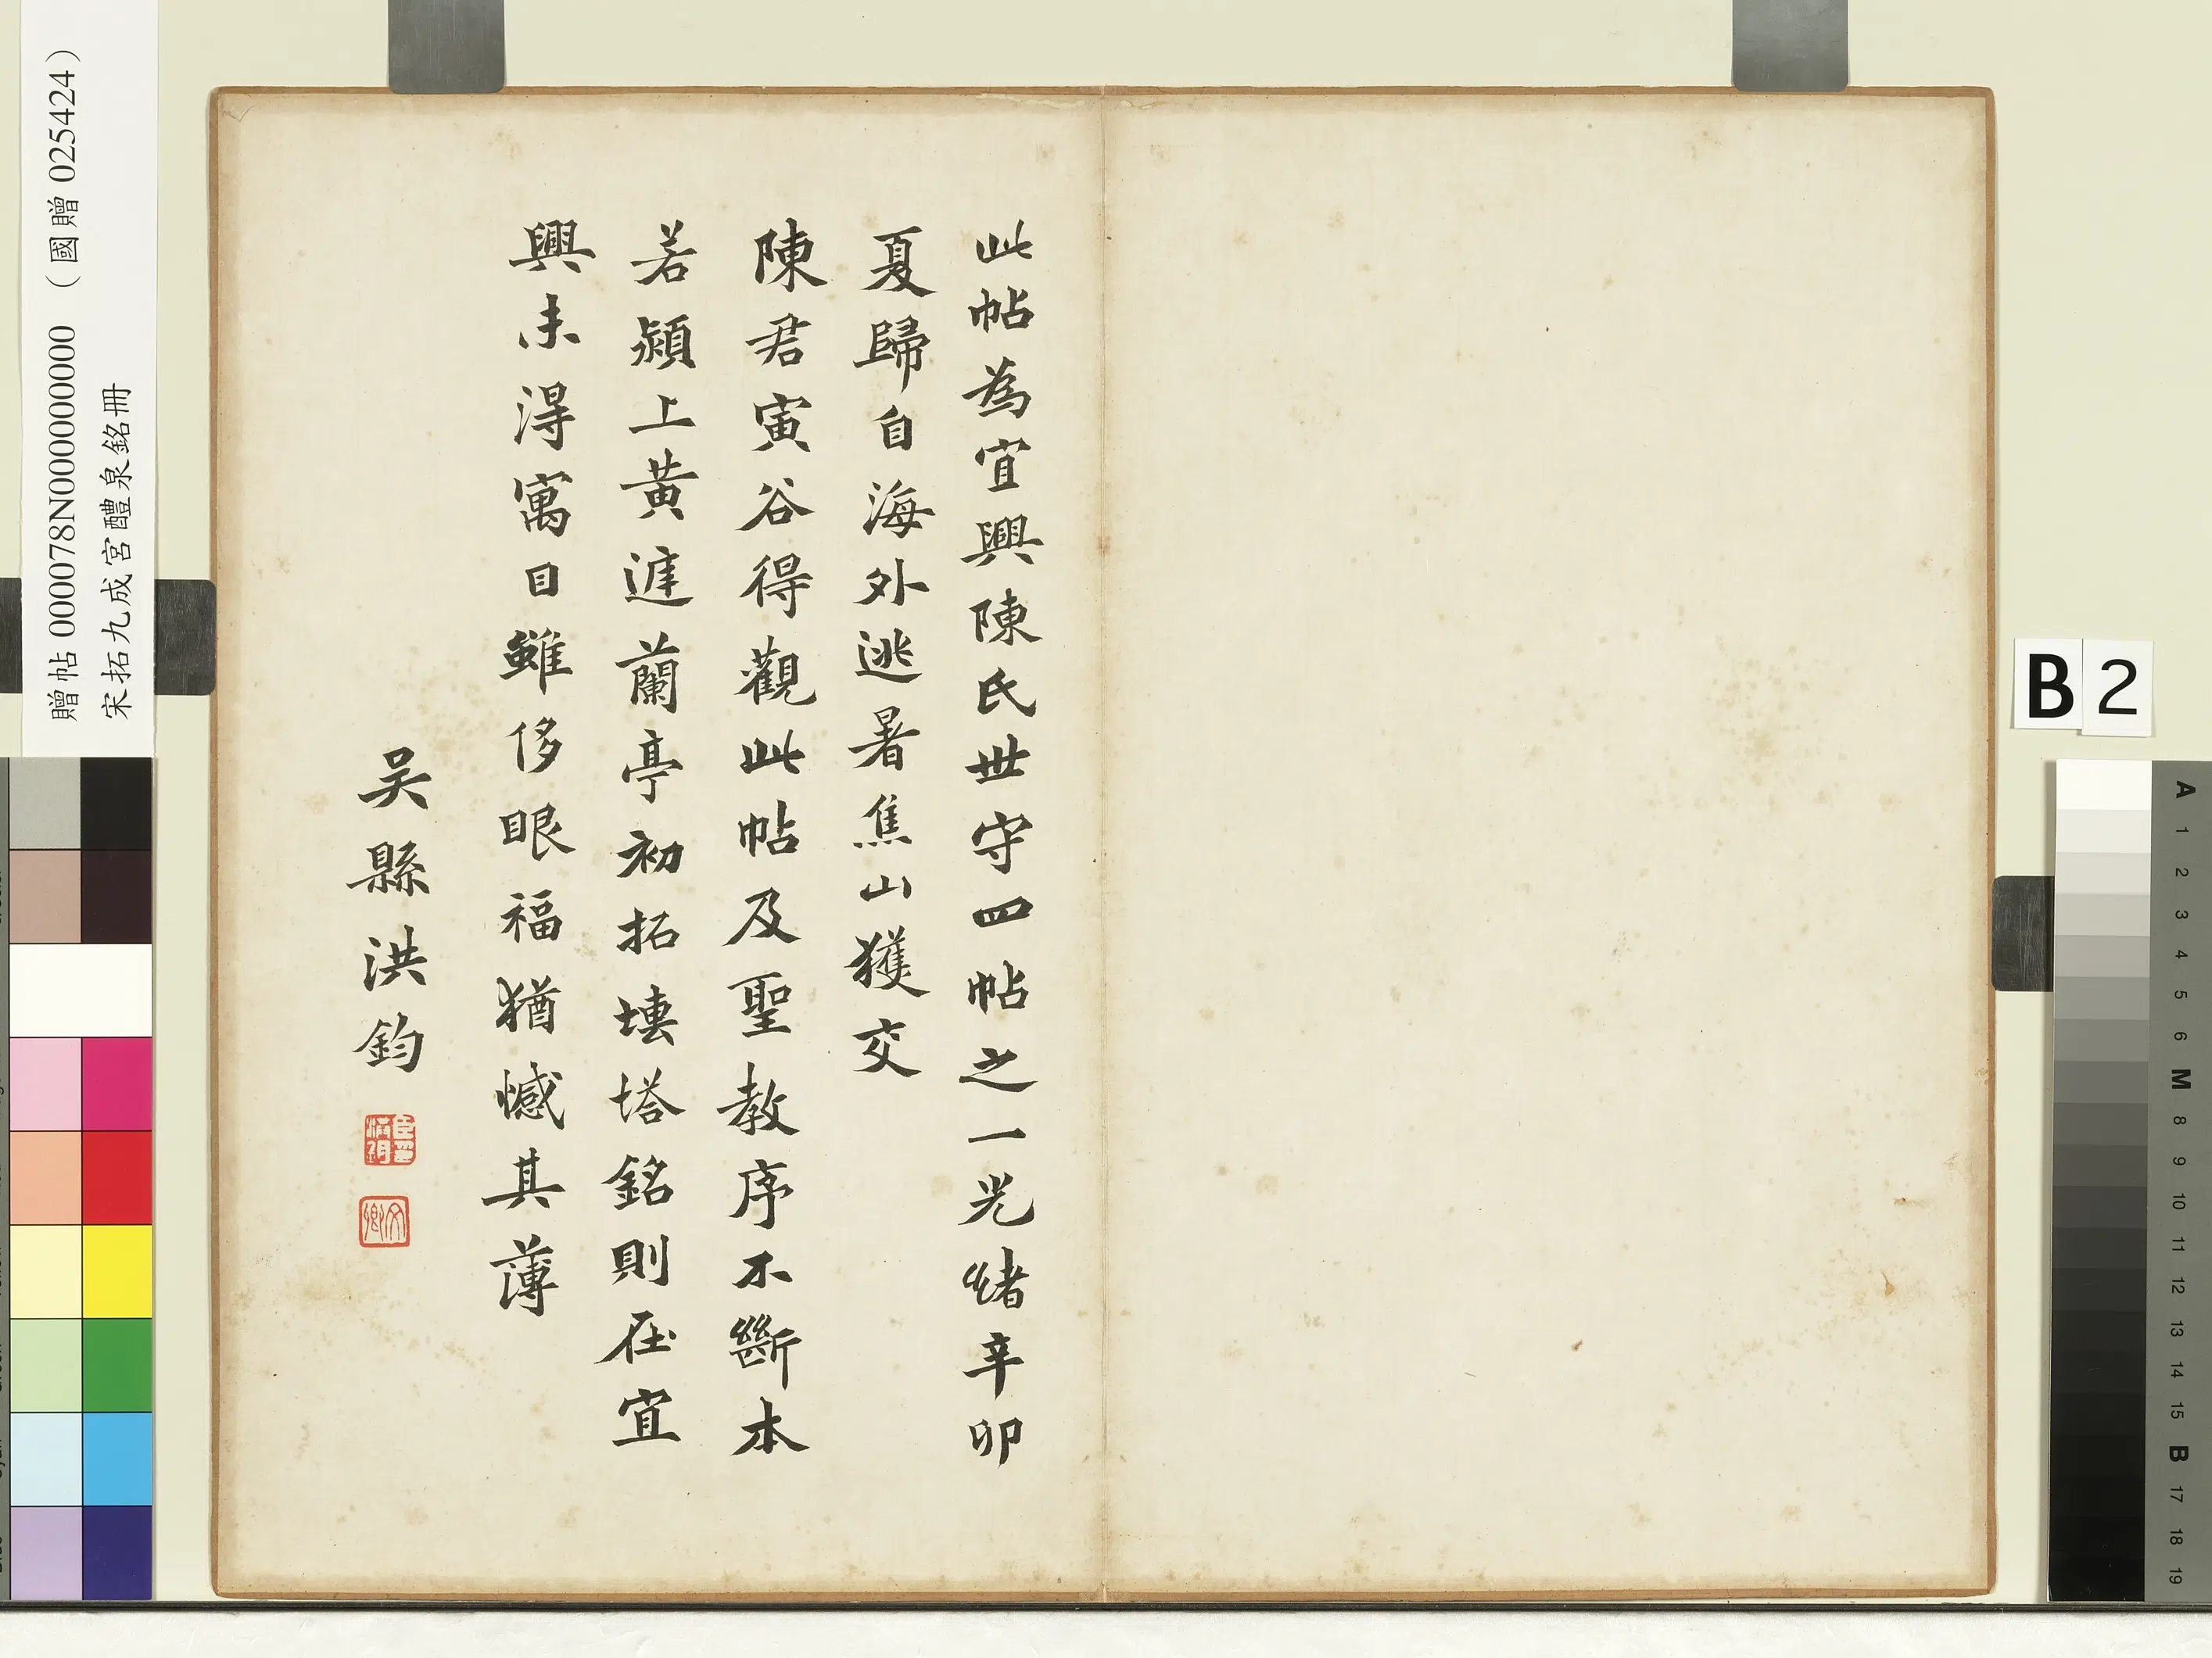 此帖為宜興陳氏世守四帖之一光緒辛卯
夏歸自海外逃暑焦山獲交
陳君寅谷得觀此帖及聖教序不斷本
若潁上黃遮蘭亭初拓塼塔銘則在宜
興未得寓目雖侈眼福猶憾其薄
吴縣洪鈞
文卿
贈帖 000078N000000000 （國贈 025424）
宋拓九成宮醴泉銘冊
B 2
A
1
2
3
4
5
6
M
8
9
10
11
12
13
14
15
B
17
18
19